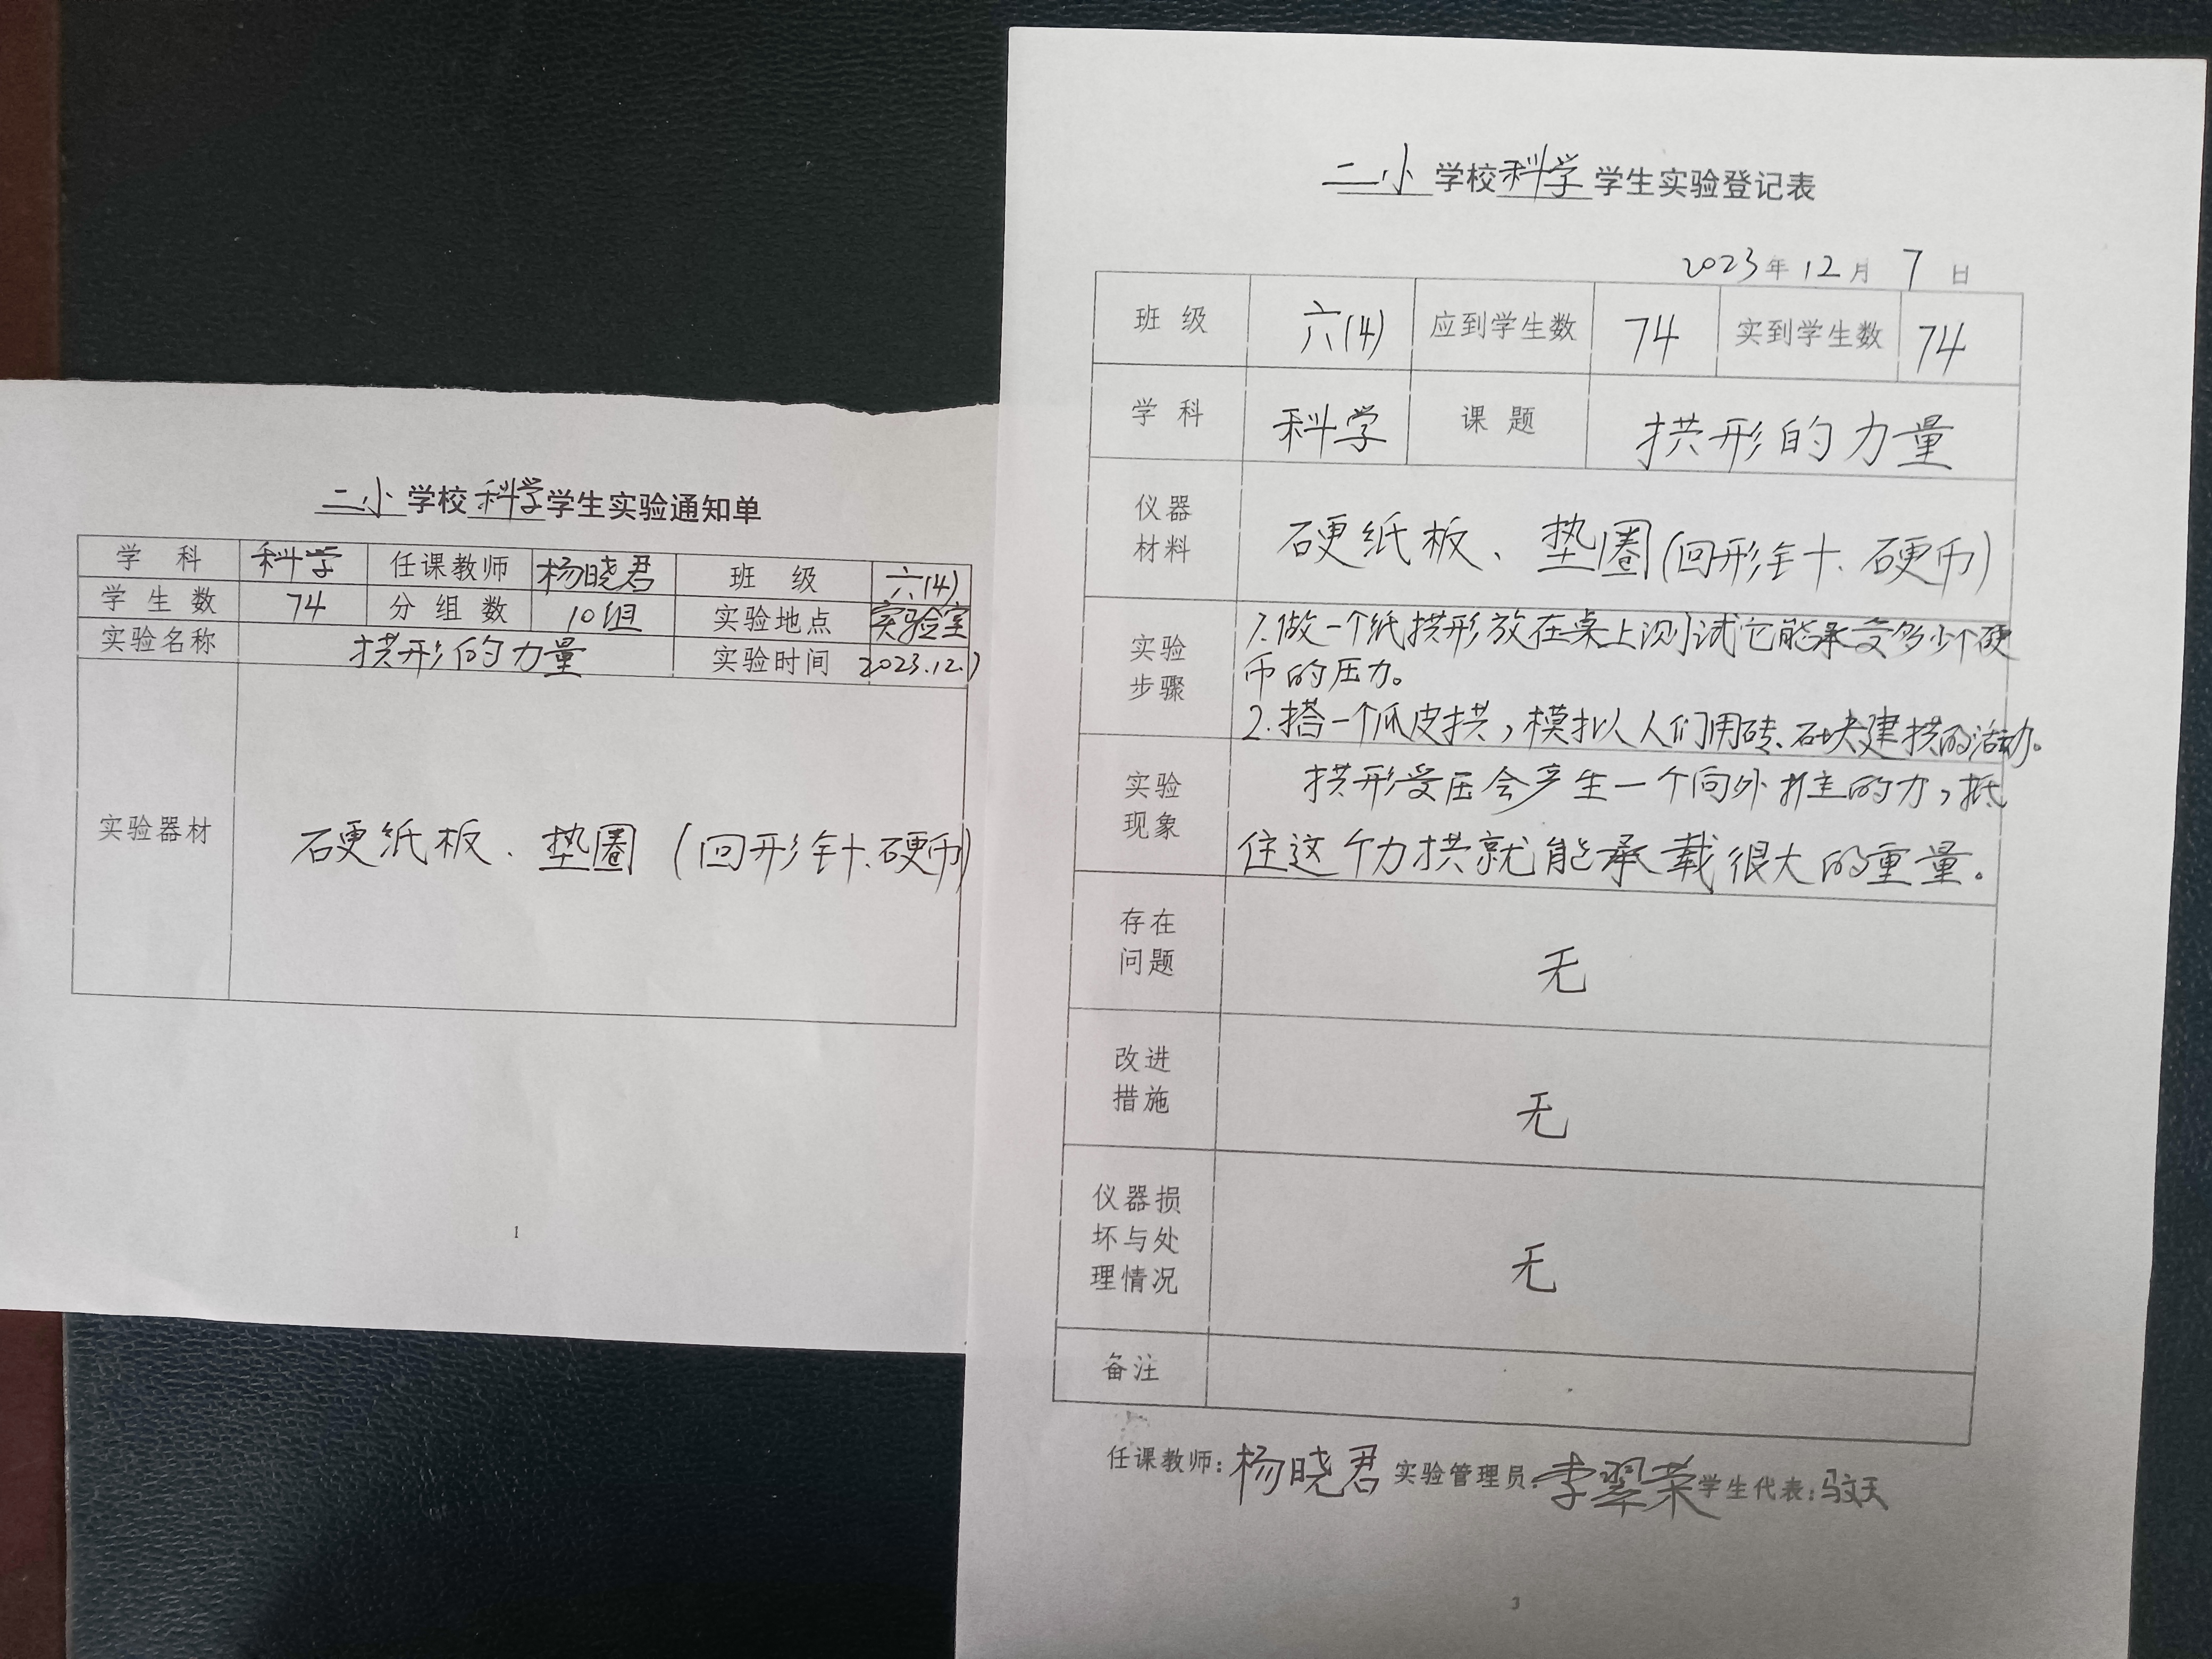 二小学校科学学生实验通知单
学 科 科学 任课教师 杨晓君 班 级 六(4)
学 生 数 74 分 组 数 10组 实验地点 实验室
实验名称 拱形的力量 实验时间 2023.12.7
实验器材 硬纸板、垫圈(回形针、硬币)
1
二小学校科学学生实验登记表
2023年12月7日
班 级 六(4) 应到学生数 74 实到学生数 74
学 科 科学 课 题 拱形的力量
仪器
材料
硬纸板、垫圈(回形针、硬币)
实验
步骤
1.做一个纸拱形放在桌上测试它能承受多少个硬
币的压力。
2.搭一个瓜皮拱,模拟人们用砖、石块建拱的活动。
实验
现象
拱形受压会产生一个向外推的力,抵
住这个力拱就能承载很大的重量。
存在
问题
无
改进
措施
无
仪器损
坏与处
理情况
无
备注
任课教师:杨晓君 实验管理员:李翠荣 学生代表:马文天
3